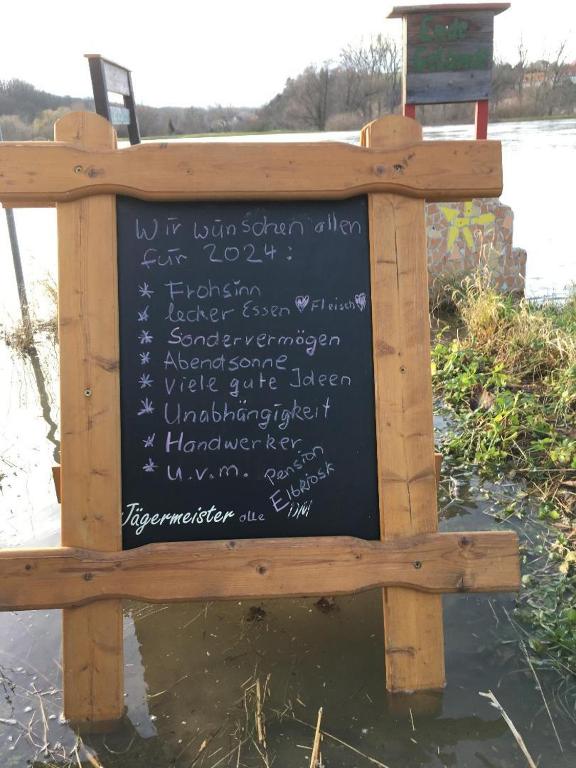 Wir wünschen allen
für 2024:
* Frohsinn
* lecker Essen ♡ Fleisch ♡
* Sondervermögen
* Abendsonne
* Viele gute Ideen
* Unabhängigkeit
* Handwerker
* u.v.m.
Pension
Elbkiosk
Jägermeister alle